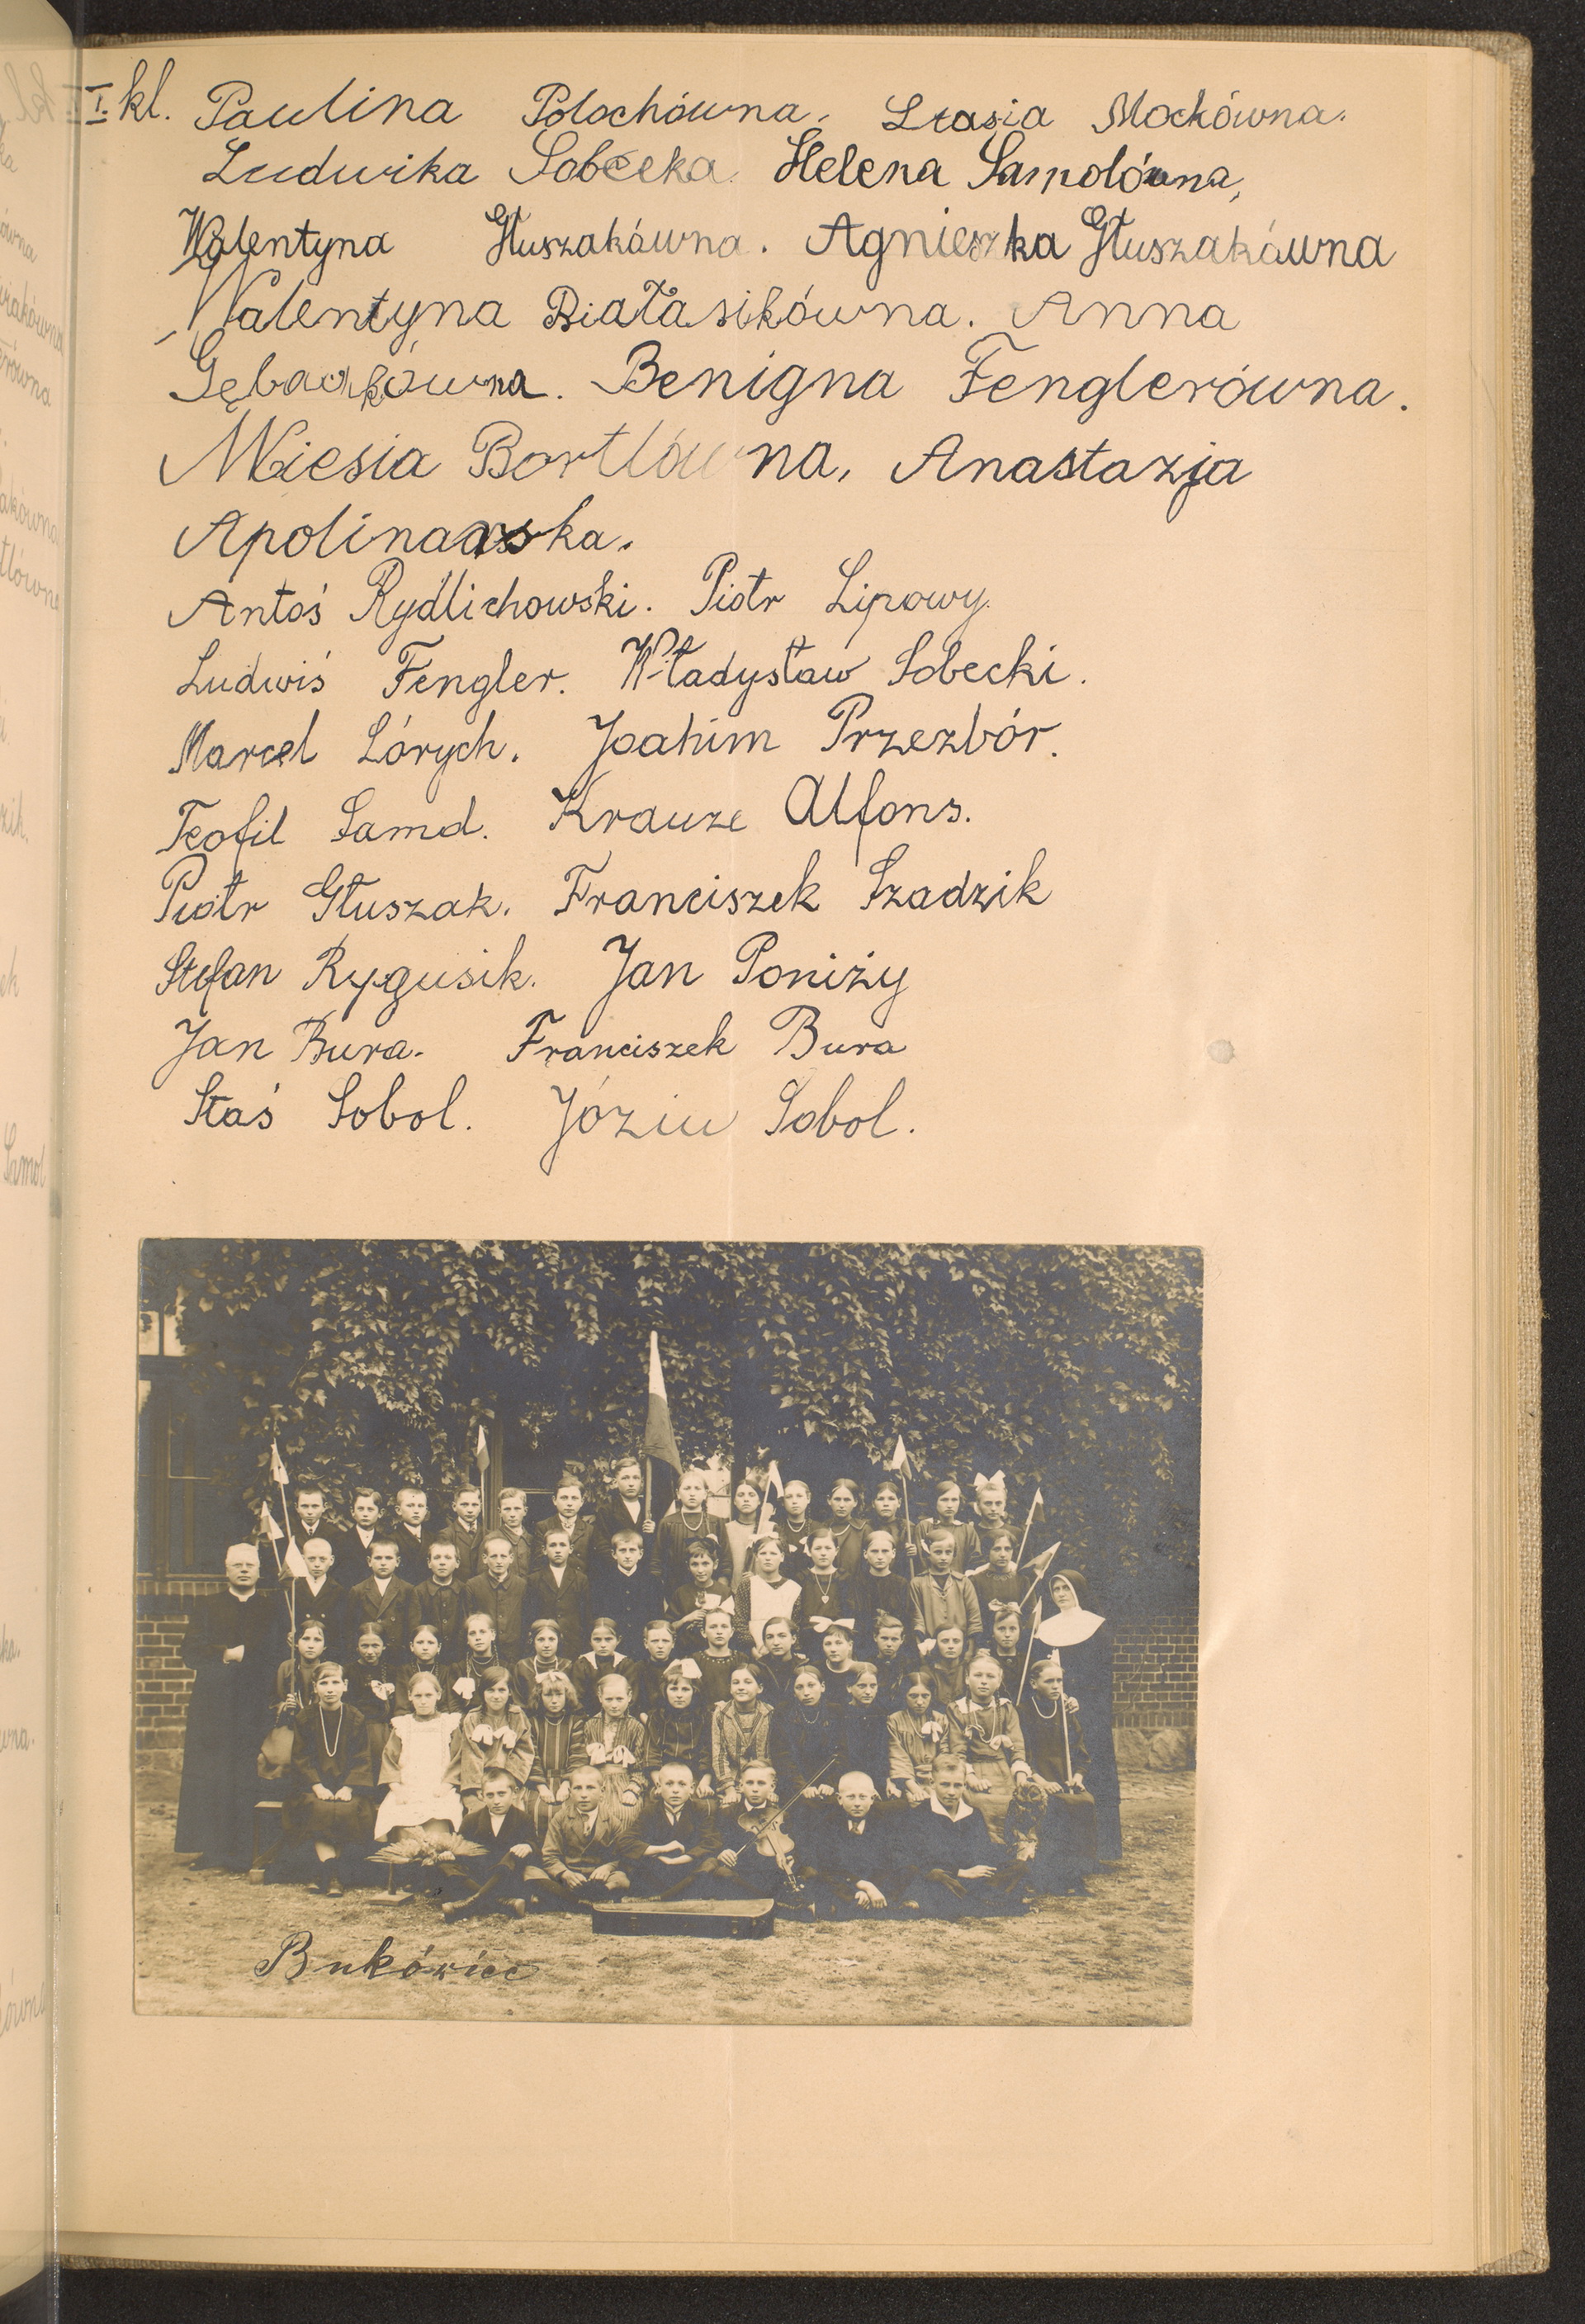 I. kl. Paulina Polochówna. Stasia Mockówna.
Ludwika Sobecka. Helena Samolówna,
Walentyna Głuszakówna. Agnieszka Głuszakówna
Walentyna Białasikówna. Anna
Benigna Fenglerówna.
Miesia Bortlówna, Anastazja
Apolinarska.
Antoś Rydlichowski. Piotr Lipowy.
Ludwiś Fengler. Władysław Sobecki.
Marcel Lórych. Joahim Przezbór.
Teofil Samol. Krauze Alfons.
Piotr Głuszak. Franciszek Szadzik
Stefan Rygusik. Jan Poniży
Jan Bura. Franciszek Bura
Staś Sobol. Józiu Sobol.
Bukówiec